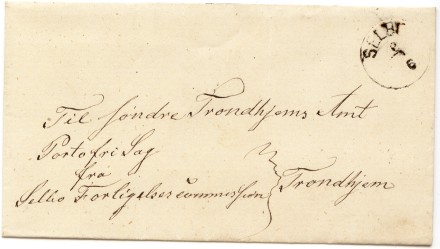 SELBU
8
6
Til søndre Trondhjems Amt
Portofri Sag
fra
Selbo Forligelsescommission
Trondhjem